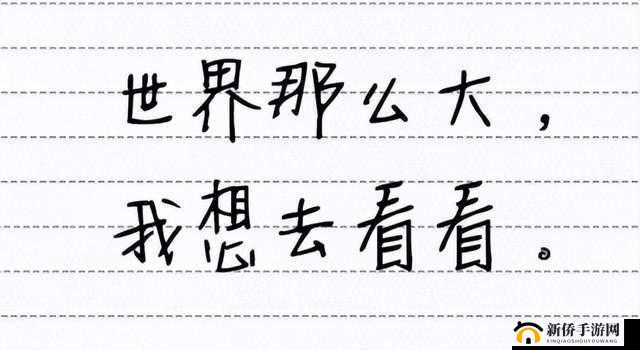 世界那么大，
我想去看看。
新侨手游网
XINQIAOSHOUYOUWANG